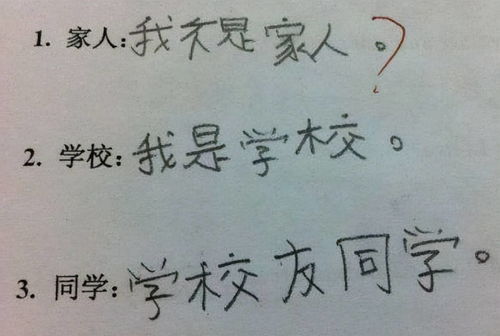 1. 家人:我不是家人。?
2. 学校:我是学校。
3. 同学:学校友同学。